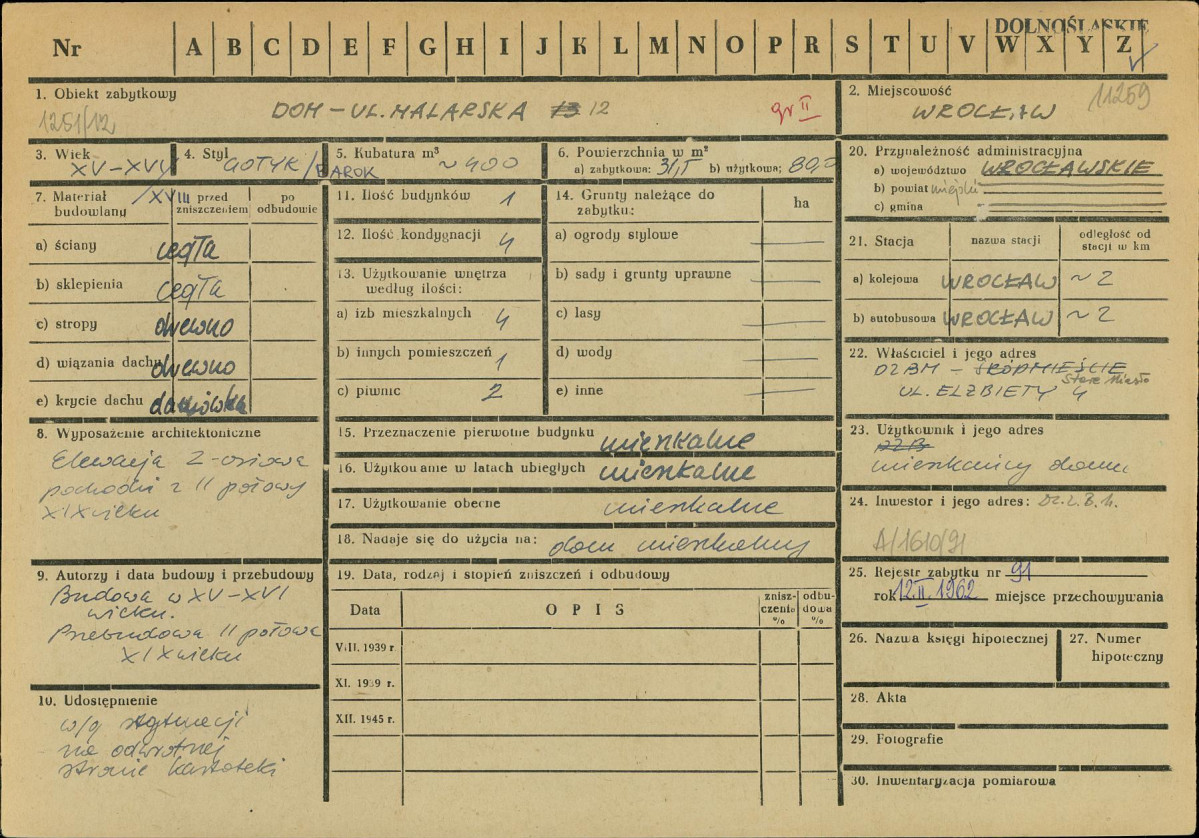 DOLNOŚLĄSKIE
Nr A B C D E F G H I J K L M N O P R S T U V W X Y Z
1. Obiekt zabytkowy
1251/12
DOM - UL. MALARSKA 12
gr II
2. Miejscowość
11259
WROCŁAW
3. Wiek
XV-XVI/XVIII
4. Styl
GOTYK/BAROK
5. Kubatura m³
~ 900
6. Powierzchnia w m²
a) zabytkowa: b) użytkowa:
7. Materiał budowlany
przed zniszczeniem
po odbudowie
a) ściany cegła
b) sklepienia cegła
c) stropy drewno
d) wiązania dachu drewno
e) krycie dachu dachówka
8. Wyposażenie architektoniczne
Elewacja 2-osiowa
pochodzi z II połowy
XIX wieku
9. Autorzy i data budowy i przebudowy
Budowa w XV-XVI
wieku.
Przebudowa II połowa
XIX wieku
10. Udostępnienie
w/g sytuacji
na odwrotnej
stronie kartoteki
11. Ilość budynków 1
12. Ilość kondygnacji 4
13. Użytkowanie wnętrza
według ilości:
a) izb mieszkalnych 4
b) innych pomieszczeń 1
c) piwnic 2
14. Grunty należące do
zabytku:
ha
a) ogrody stylowe
b) sady i grunty uprawne
c) lasy
d) wody
e) inne
15. Przeznaczenie pierwotne budynku mieszkalne
16. Użytkowanie w latach ubiegłych mieszkalne
17. Użytkowanie obecne mieszkalne
18. Nadaje się do użycia na: dom mieszkalny
19. Data, rodzaj i stopień zniszczeń i odbudowy
Data
OPIS
znisz-
czenia
%
odbu-
dowa
%
VIII. 1939 r.
XI. 1939 r.
XII. 1945 r.
20. Przynależność administracyjna
a) województwo WROCŁAWSKIE
b) powiat miejski
c) gmina
21. Stacja
nazwa stacji
odległość od
stacji w km
a) kolejowa WROCŁAW ~ 2
b) autobusowa WROCŁAW ~ 2
22. Właściciel i jego adres
DZBM - ŚRÓDMIEŚCIE
Stare Miasto
UL. ELŻBIETY 4
23. Użytkownik i jego adres
DZB
mieszkańcy domu
24. Inwestor i jego adres: Dz.Z.B.M.
A/1610/91
25. Rejestr zabytku nr 91
rok 12.II.1962 miejsce przechowywania
26. Nazwa księgi hipotecznej
27. Numer
hipoteczny
28. Akta
29. Fotografie
30. Inwentaryzacja pomiarowa